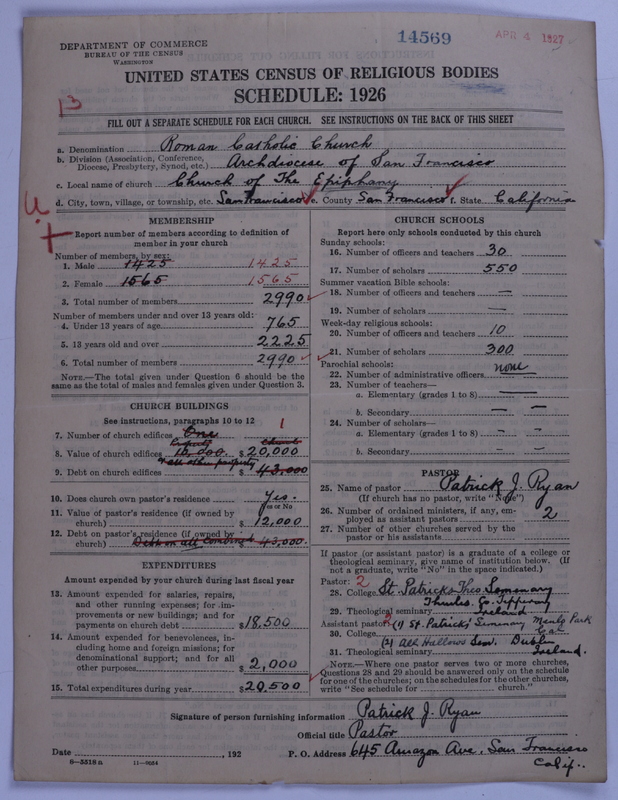 14569
APR 4 1927
DEPARTMENT OF COMMERCE
BUREAU OF THE CENSUS
WASHINGTON
UNITED STATES CENSUS OF RELIGIOUS BODIES
SCHEDULE: 1926
13
FILL OUT A SEPARATE SCHEDULE FOR EACH CHURCH. SEE INSTRUCTIONS ON THE BACK OF THIS SHEET
a. Denomination Roman Catholic Church
b. Division (Association, Conference, Diocese, Presbytery, Synod, etc.) Archdiocese of San Francisco
c. Local name of church Church of The Epiphany
d. City, town, village, or township, etc. San Francisco e. County San Francisco f. State California
MEMBERSHIP
Report number of members according to definition of
member in your church
Number of members, by sex:
1. Male 1425 1425
2. Female 1565 1565
3. Total number of members 2990
Number of members under and over 13 years old:
4. Under 13 years of age 765
5. 13 years old and over 2225
6. Total number of members 2990
NOTE.—The total given under Question 6 should be the
same as the total of males and females given under Question 3.
CHURCH BUILDINGS
See instructions, paragraphs 10 to 12
7. Number of church edifices One 1
8. Value of church edifices 18,000. $20,000
& all other property
9. Debt on church edifices 43,000
10. Does church own pastor's residence Yes.
Yes or No
11. Value of pastor's residence (if owned by
church) $12,000
12. Debt on pastor's residence (if owned by
church) Debt on all combined 43,000.
EXPENDITURES
Amount expended by your church during last fiscal year
13. Amount expended for salaries, repairs,
and other running expenses; for im-
provements or new buildings; and for
payments on church debt $18,500
14. Amount expended for benevolences, in-
cluding home and foreign missions; for
denominational support; and for all
other purposes 2,000
15. Total expenditures during year $20,500
CHURCH SCHOOLS
Report here only schools conducted by this church
Sunday schools:
16. Number of officers and teachers 30
17. Number of scholars 550
Summer vacation Bible schools:
18. Number of officers and teachers —
19. Number of scholars —
Week-day religious schools:
20. Number of officers and teachers 10
21. Number of scholars 300
Parochial schools:
22. Number of administrative officers none
23. Number of teachers—
a. Elementary (grades 1 to 8) — —
b. Secondary — —
24. Number of scholars—
a. Elementary (grades 1 to 8) — —
b. Secondary — —
PASTOR
25. Name of pastor Patrick J. Ryan
(If church has no pastor, write "None")
26. Number of ordained ministers, if any, em-
ployed as assistant pastors 2
27. Number of other churches served by the
pastor or his assistants
If pastor (or assistant pastor) is a graduate of a college or
theological seminary, give name of institution below. (If
not a graduate, write "No" in the space indicated.)
Pastor: 2
28. College St. Patricks Theo Seminary
Thurles Co. Tipperary
29. Theological seminary Ireland
Assistant pastor: (1) St. Patricks' Seminary Menlo Park
30. College Cal
(2) All Hallows Sem. Dublin
31. Theological seminary Ireland.
NOTE.—Where one pastor serves two or more churches,
Questions 28 and 29 should be answered only on the schedule
for one of the churches; on the schedules for the other churches,
write "See schedule for church."
Signature of person furnishing information Patrick J. Ryan
Official title Pastor
Date , 192 P. O. Address 645 Amazon Ave. San Francisco
Calif..
8—5518 a 11—9054